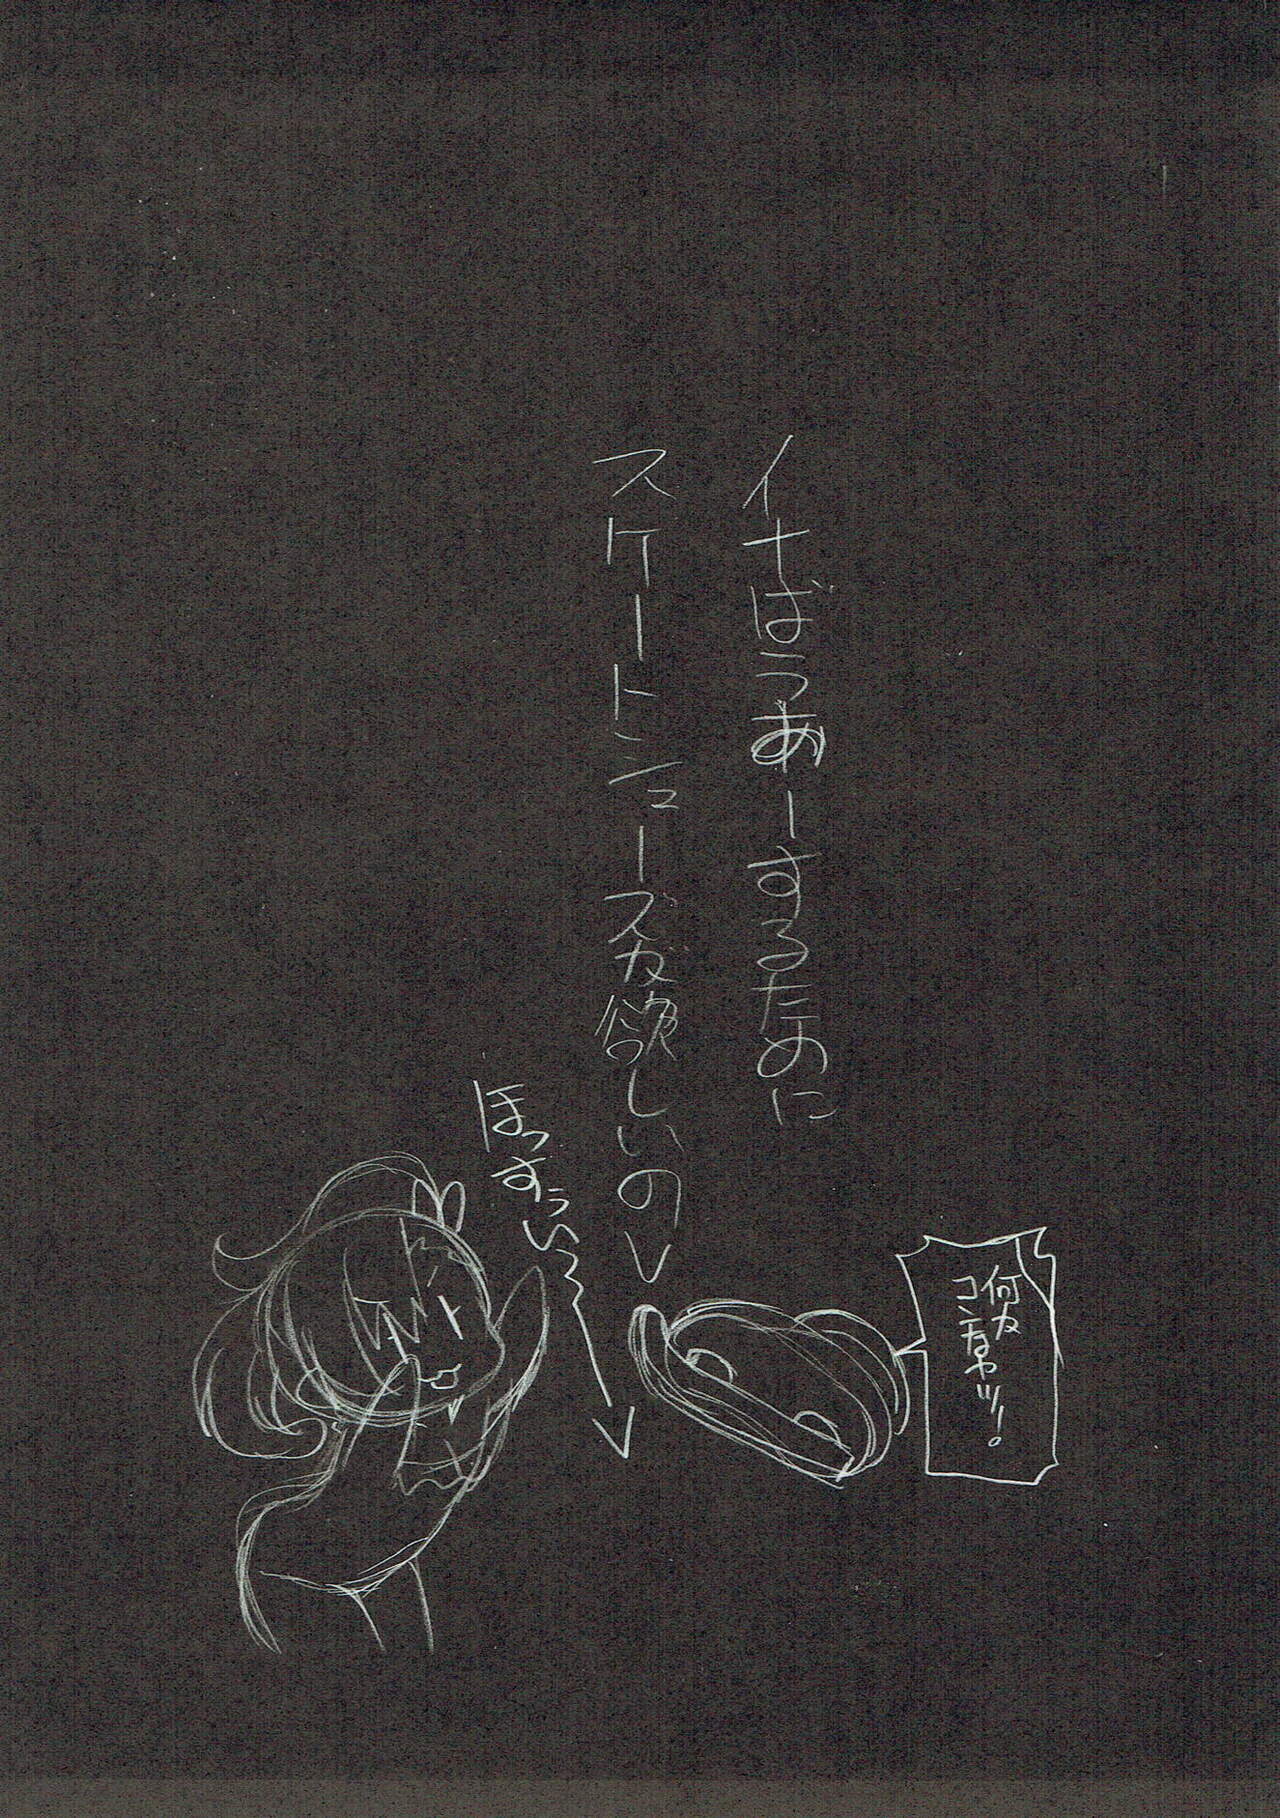 イナばうあーするために
スケートシューズが欲しいの
ほっすぅい〜
何か
コンなヤツ!。